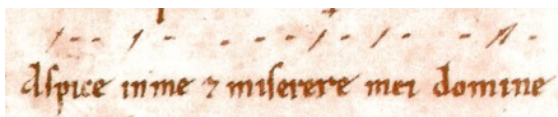 Aspice in me ⁊ miserere mei domine